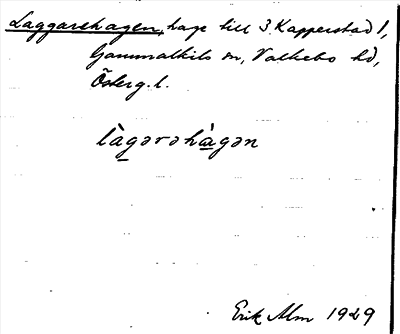 Laggarehagen, hage till 3 Kapperstad 1,
Gammalkils sn, Valkebo hd,
Österg. l.
làgərəhàgən
Erik Alm 1929